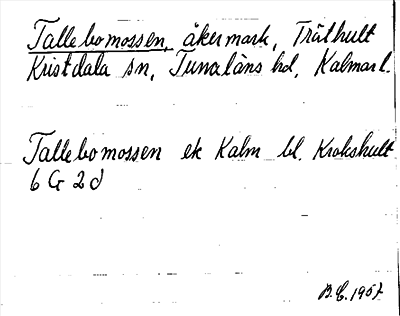 Tallebomossen, åkermark, Träthult
Kristdala sn, Tunaläns hd, Kalmar l.
Tallebomossen ek Kalm bl. Krokshult
6 G 2 d
B.E. 1957